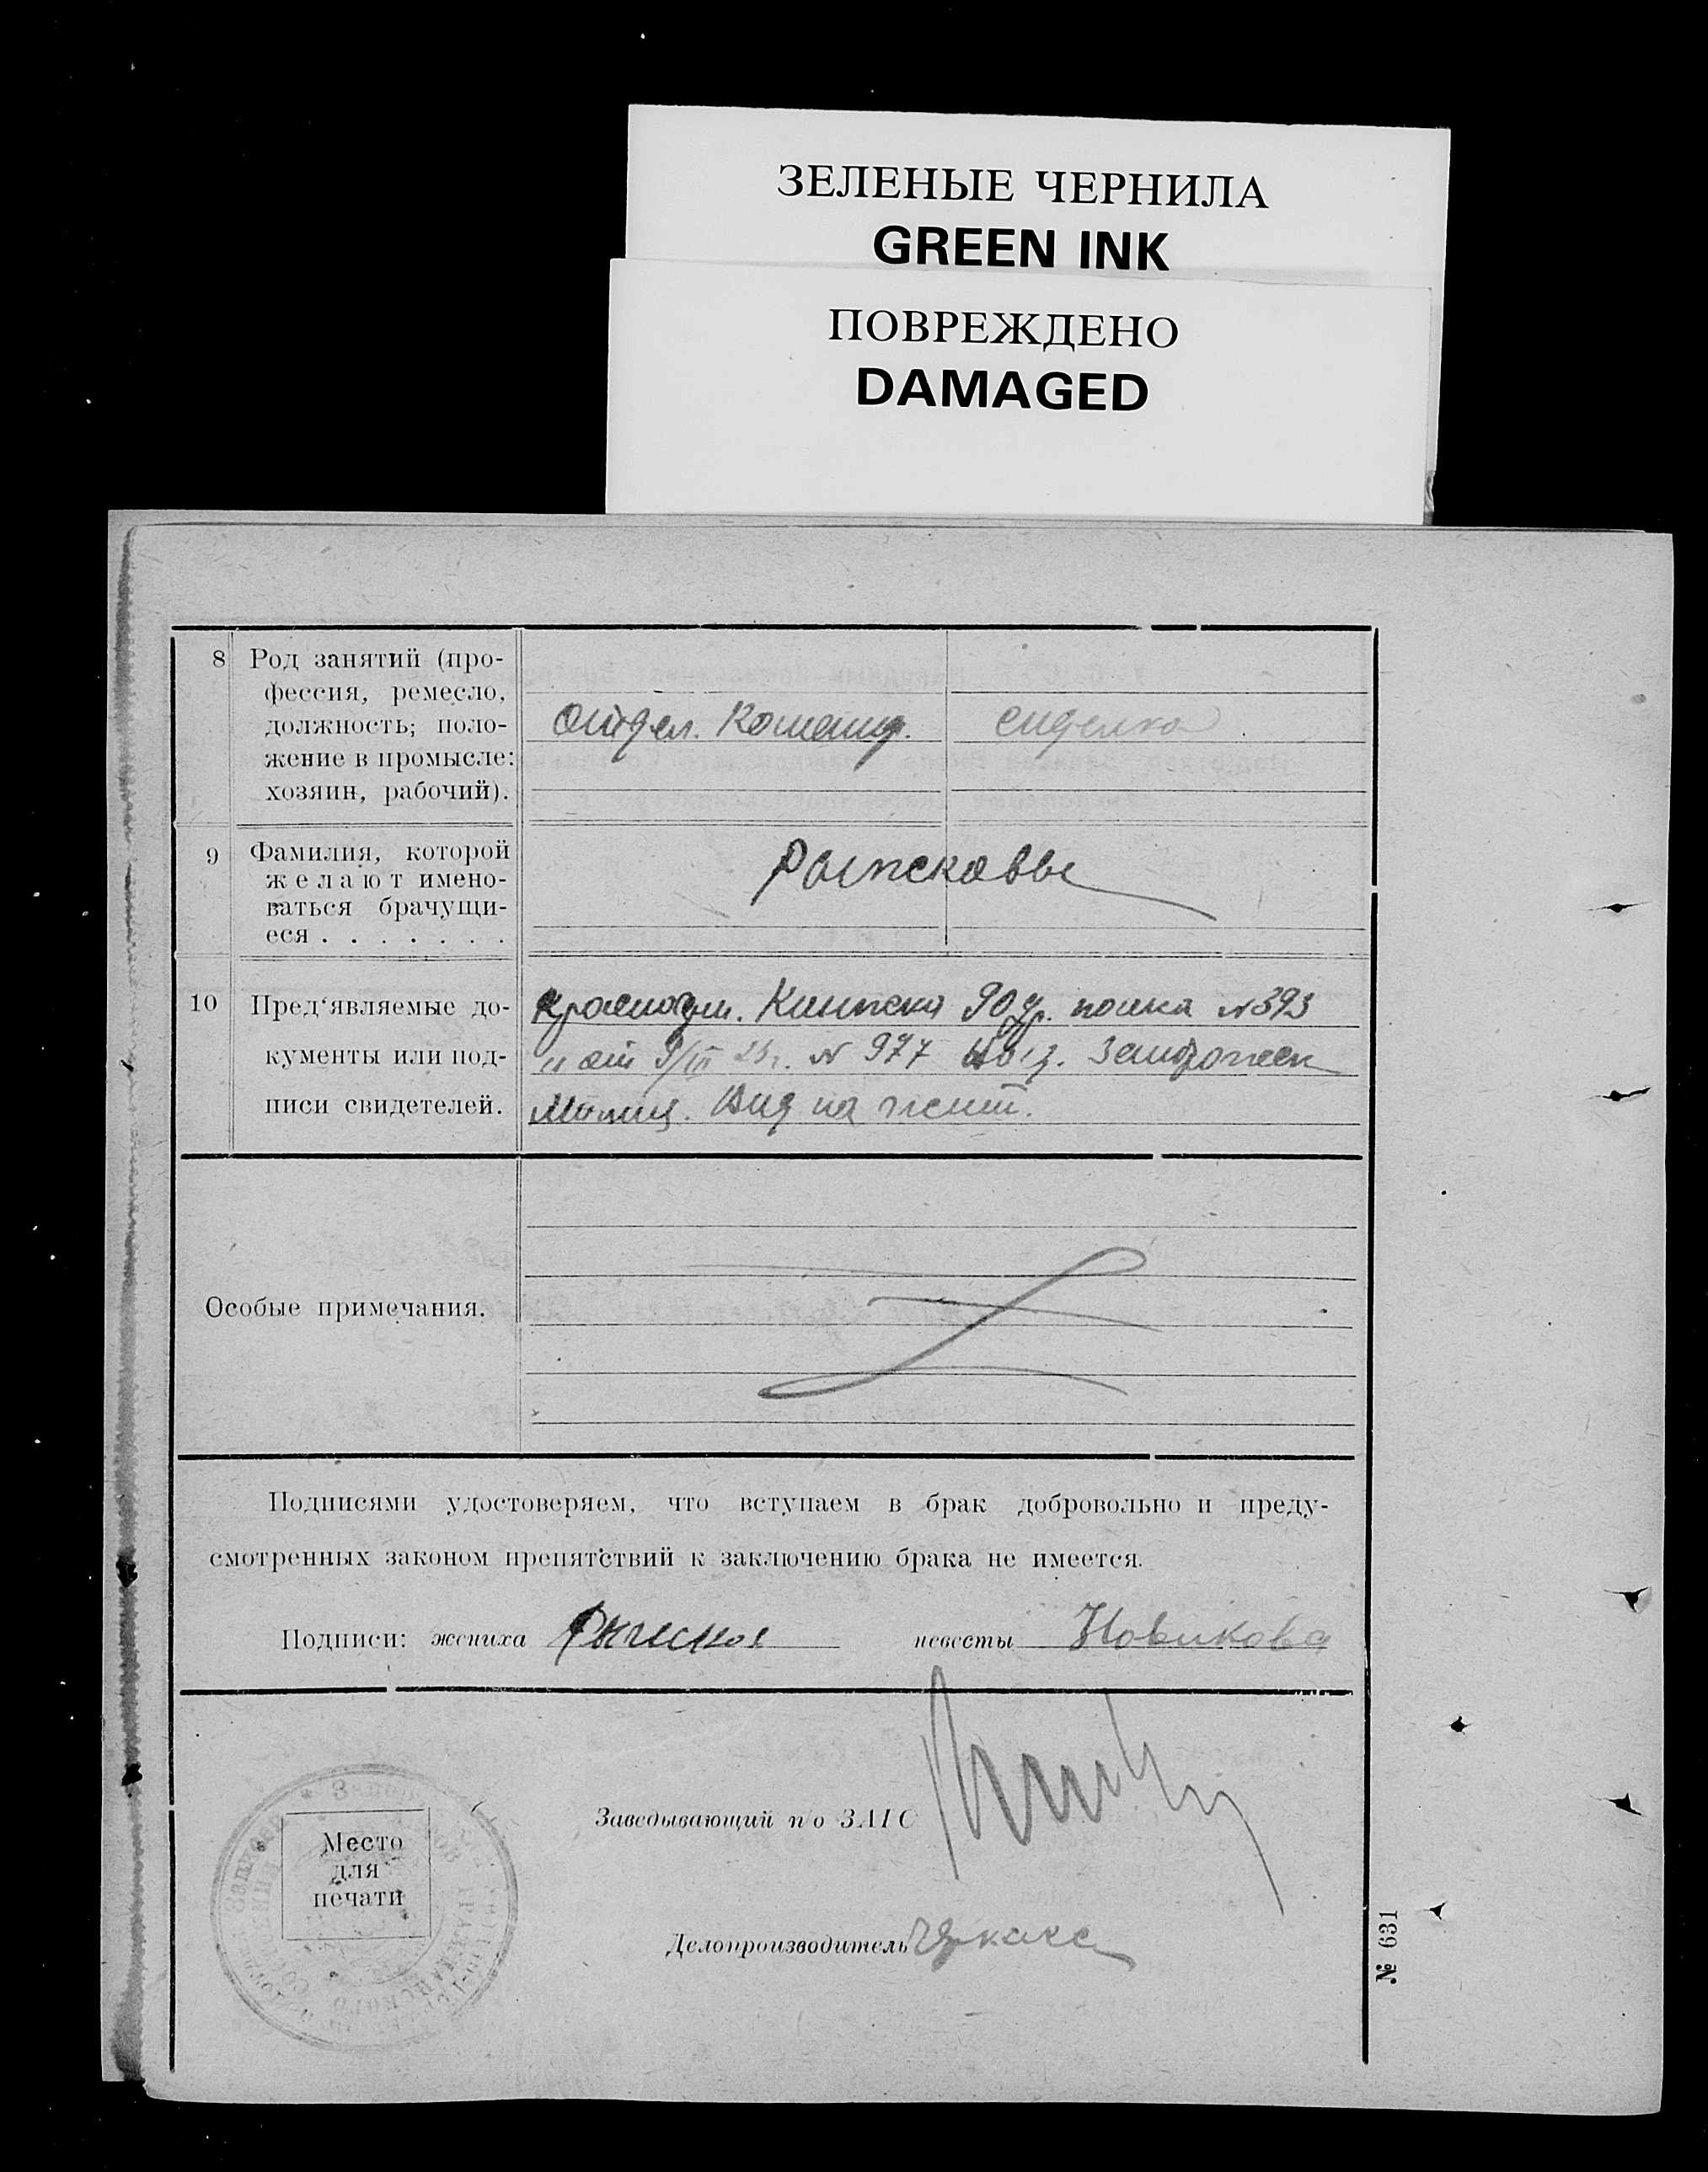 ЗЕЛЕНЫЕ ЧЕРНИЛА
GREEN INK
ПОВРЕЖДЕНО
DAMAGED
8 Род занятий (про-
фессия, ремесло,
должность; поло-
жение в промысле:
хозяин, рабочий).
Отдел. Команд. сиделка
9 Фамилия, которой
желают имено-
ваться брачущи-
еся . . . . . . .
10 Пред'являемые до-
кументы или под-
писи свидетелей.
Красноарм. Книжка 90 полка №393
от 9/III 23г. № 977
Милиц. Вид на жит.
Особые примечания.
Подписями удостоверяем, что вступаем в брак добровольно и преду-
смотренных законом препятствий к заключению брака не имеется.
Подписи: жениха невесты Новикова
Заведывающий п/о ЗАГС
Место
для
печати
Делопроизводитель
№ 631